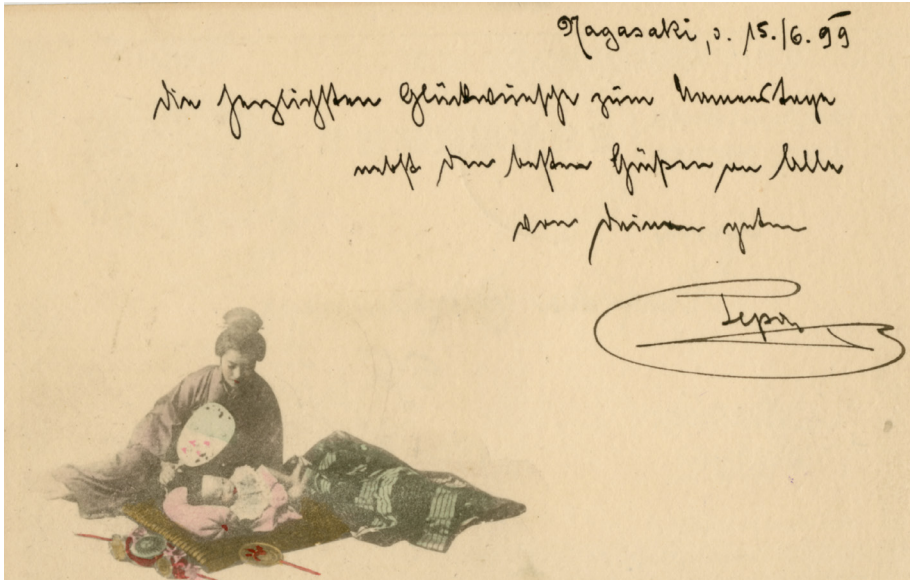 Nagasaki, d. 15./6. 99
Die herzlichsten Glückwünsche zum Namenstage
nebst den besten Grüßen an Alle
von Deinem guten
Pepo